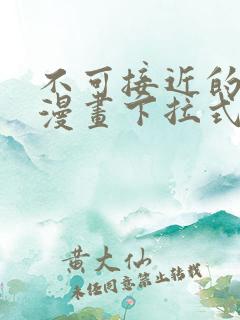 不可接近的
漫畫下拉式
黄大仙
未经同意禁止转载